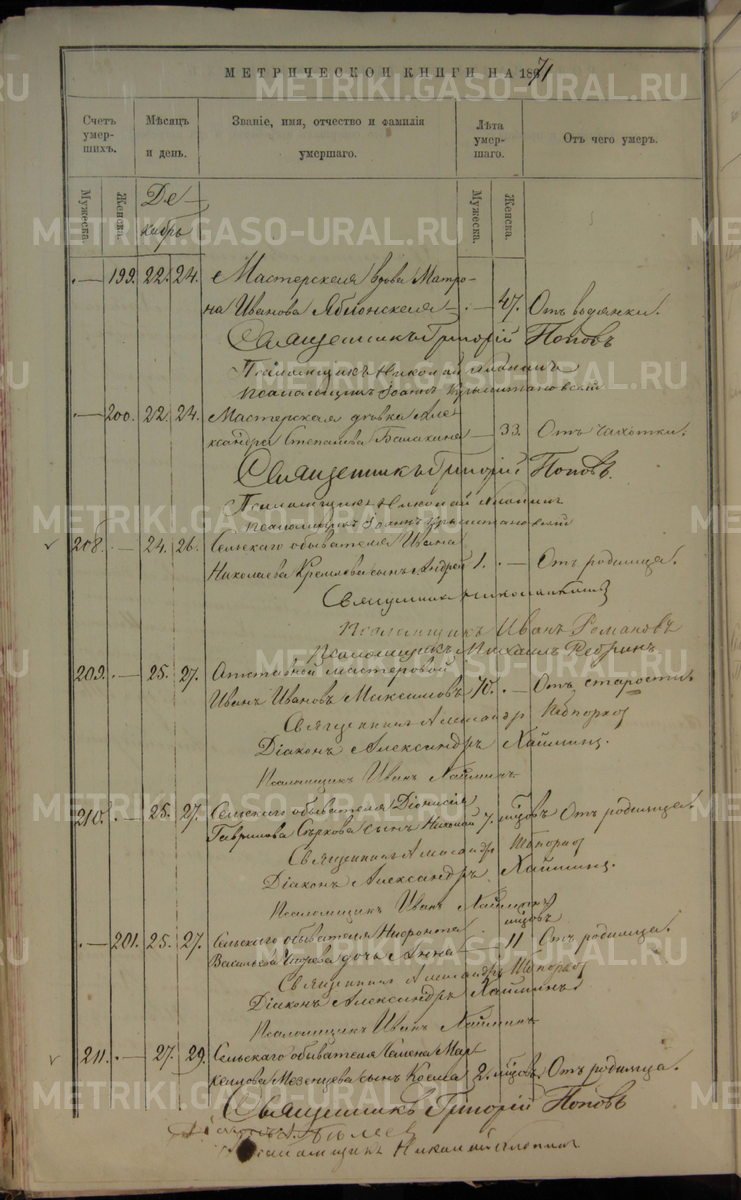 МЕТРИЧЕСКОЙ КНИГИ НА 1871
Счетъ умерших. Мѣсяцъ и день. Званіе, имя, отчество и фамилія умершаго. Лѣта умершаго. Отъ чего умеръ.
Мужеска. Женска. Мужеска. Женска.
Декабрь
— 199. 22. 24. Мастерская вдова Матро-
на Иванова Яблонская — 47. Отъ водянки.
Священникъ Григорій Поповъ
Псаломщикъ Николай
Псаломщикъ Іоаннъ
— 200. 22. 24. Мастерская дѣвка Але-
ксандра Степанова Балакина — 33. Отъ чахотки.
Священникъ Григорій Поповъ.
Псаломщикъ Николай
Псаломщикъ Іоаннъ
208. — 24. 26. Сельскаго обывателя Ивана
Николаева Кремлева сынъ Андрей 1. — Отъ родимца.
Священникъ
Псаломщикъ Иванъ Романовъ
Псаломщикъ Михаилъ Ребринъ
209. — 25. 27. Отставной мастеровой
Иванъ Ивановъ Максимовъ 70. — Отъ старости.
Священникъ Александръ
Діаконъ Александръ Хайминъ.
Псаломщикъ Иванъ Хайминъ
210. — 25. 27. Сельскаго обывателя Діонисія
Гаврилова Сѣркова сынъ Николай 7. мцовъ Отъ родимца.
Священникъ Александръ
Діаконъ Александръ Хайминъ.
Псаломщикъ Иванъ Хайминъ
мцовъ
— 201. 25. 27. Сельскаго обывателя 11 Отъ родимца.
Васильева дочь Анна
Священникъ Александръ
Діаконъ Александръ Хайминъ
Псаломщикъ Иванъ Хайминъ
211. — 27. 29. Сельскаго обывателя Семена Мар-
кешова Мезенцева сынъ Косма 2. мцовъ. Отъ родимца.
Священникъ Григорій Поповъ
Псаломщикъ Николай
METRIKI.GASO-URAL.RU